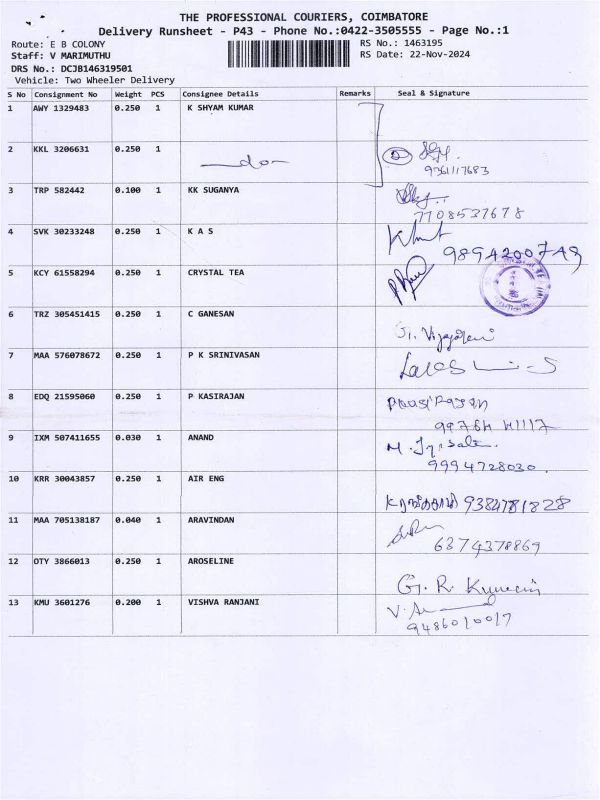 THE PROFESSIONAL COURIERS, COIMBATORE
Delivery Runsheet - P43 - Phone No.:0422-3505555 - Page No.:1
Route: E B COLONY
RS No.: 1463195
Staff: V MARIMUTHU
RS Date: 22-Nov-2024
DRS No.: DCJB146319501
Vehicle: Two Wheeler Delivery
S No Consignment No Weight PCS Consignee Details Remarks Seal & Signature
1 AWY 1329483 0.250 1 K SHYAM KUMAR
2 KKL 3206631 0.250 1 do
9361117683
3 TRP 582442 0.100 1 KK SUGANYA
7708537678
4 SVK 30233248 0.250 1 K A S
5 KCY 61558294 0.250 1 CRYSTAL TEA
6 TRZ 305451415 0.250 1 C GANESAN
7 MAA 576078672 0.250 1 P K SRINIVASAN
8 EDQ 21595060 0.250 1 P KASIRAJAN
9 IXM 507411655 0.030 1 ANAND
9994728030.
10 KRR 30043857 0.250 1 AIR ENG
9384781828
11 MAA 705138187 0.040 1 ARAVINDAN
6374378869
12 OTY 3866013 0.250 1 AROSELINE
G. R.
13 KMU 3601276 0.200 1 VISHVA RANJANI